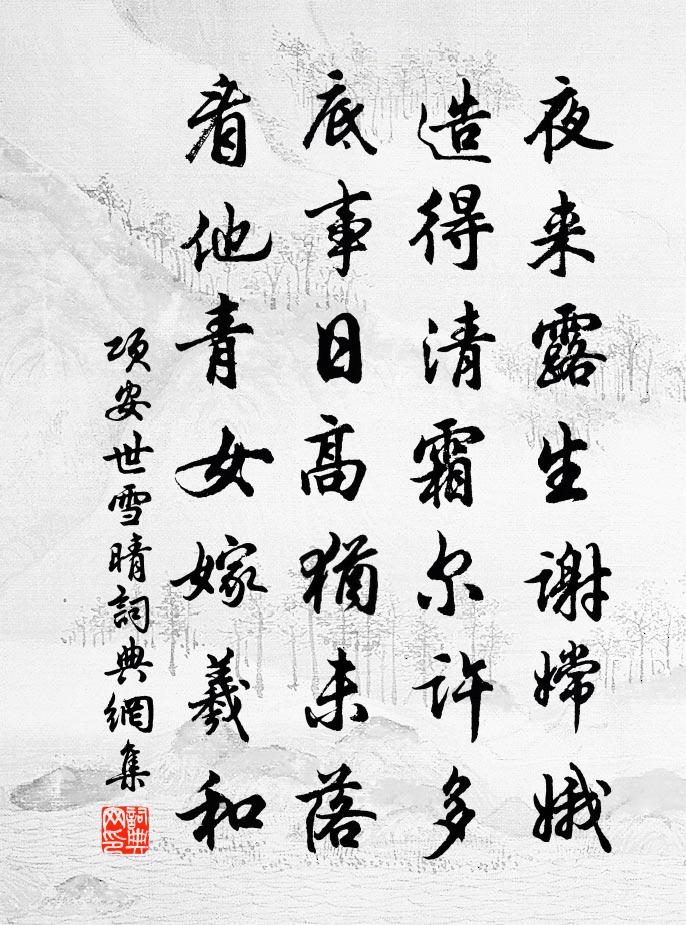 夜来露生谢嫦娥
造得清霜尔许多
底事日高犹未落
看他青女嫁羲和
项安世雪晴詞典網集
詞典
网印